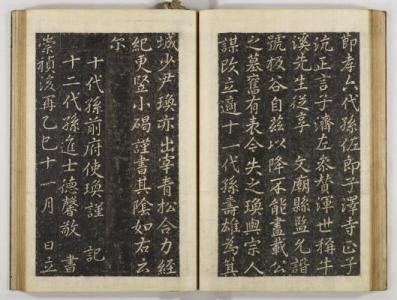 節孝六代孫佐郎子澤寺正子
沆正言子濟左參贊渾世稱牛
溪先生從享 文廟縣監允諧
號板谷自茲以降不能盡載公
之墓舊有表今失之瑍與宗人
謀改立適十一代孫壽雄為箕
城少尹瑍亦出宰青松合力經
紀更竪小碣謹書其陰如右云
尔
十代孫前府使瑍謹 記
十二代孫進士德馨敬 書
崇禎後再乙巳十一月 日立